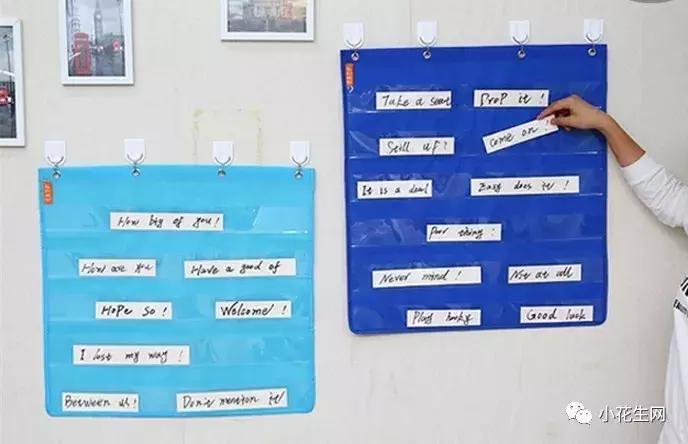 Take a seat
Drop it!
Still up?
Come on!
It is a deal
Easy does it!
Poor thing!
Never mind!
Not at all
Play hooky
Good luck
How big of you!
How are you
Have a good of
Hope so!
Welcome!
I lost my way!
Between us!
Don't mention it
小花生网